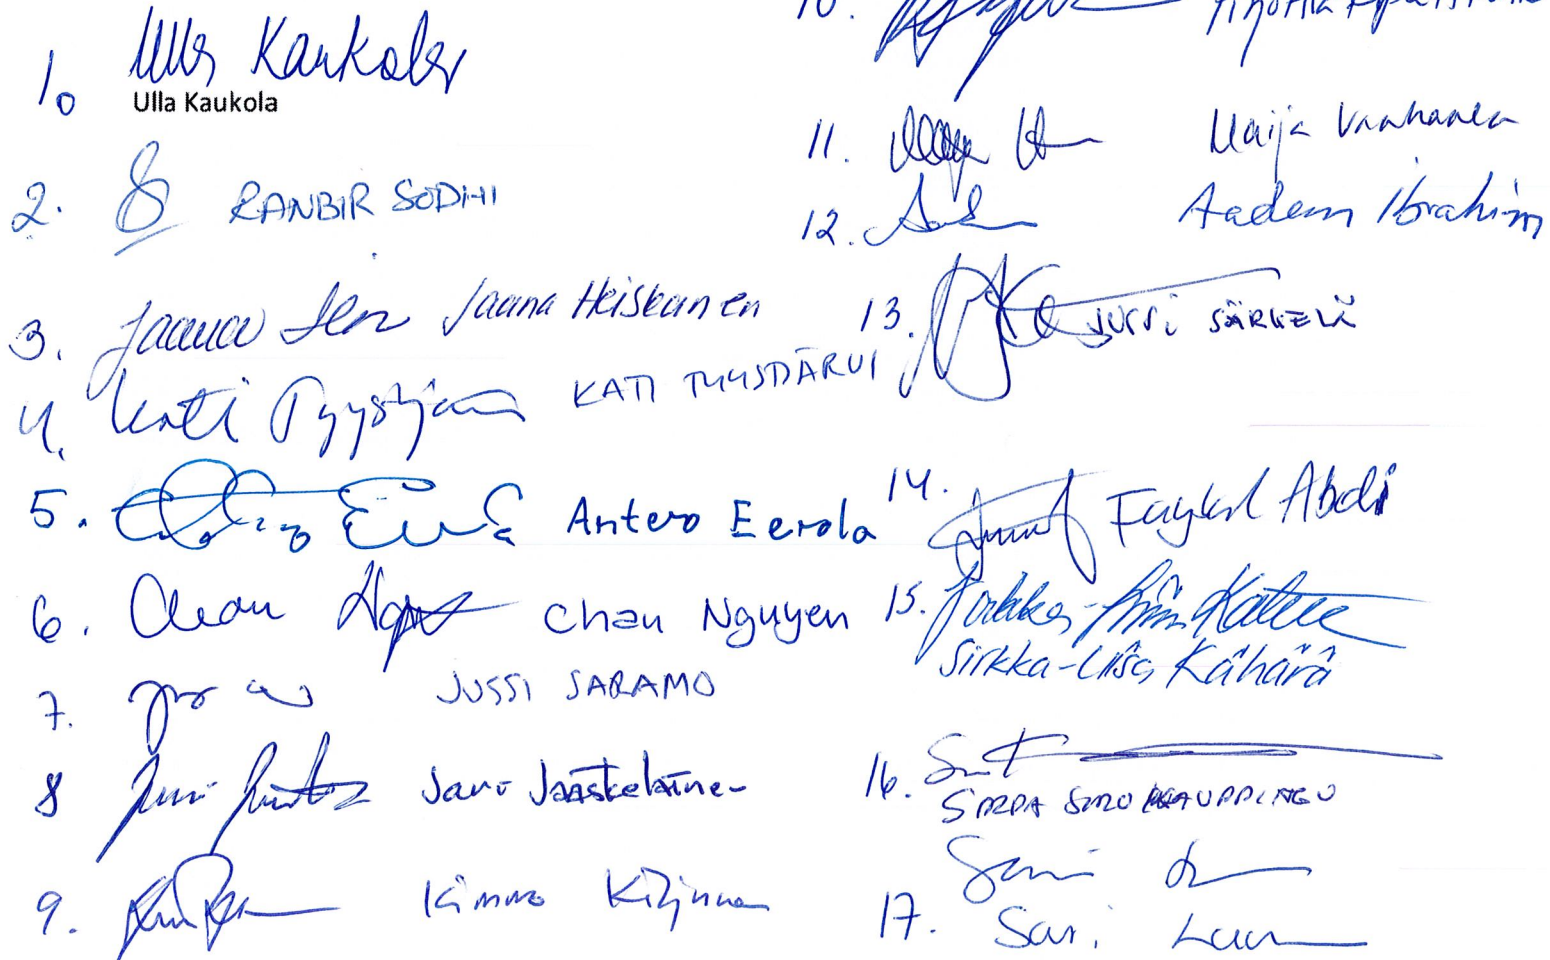 1. Ulla Kaukola
Ulla Kaukola
2. RANBIR SODHI
3. Jaana Jaana Heiskanen
4. Kati Tyystjärvi KATI TYYSTJÄRVI
5. Antero Eerola
6. Chau Chau Nguyen
7. JUSSI SARAMO
8 Jani Jääskeläinen
9. Kimmo Kiljunen
10.
11. Maija Vanhanen
12. Aadem Ibrahim
13. JUSSI SÄRKELÄ
14. Faysal Abdi
15. Sirkka-Liisa Kähärä
Sirkka-Liisa Kähärä
16.
SIRPA
17. Sari
Sari